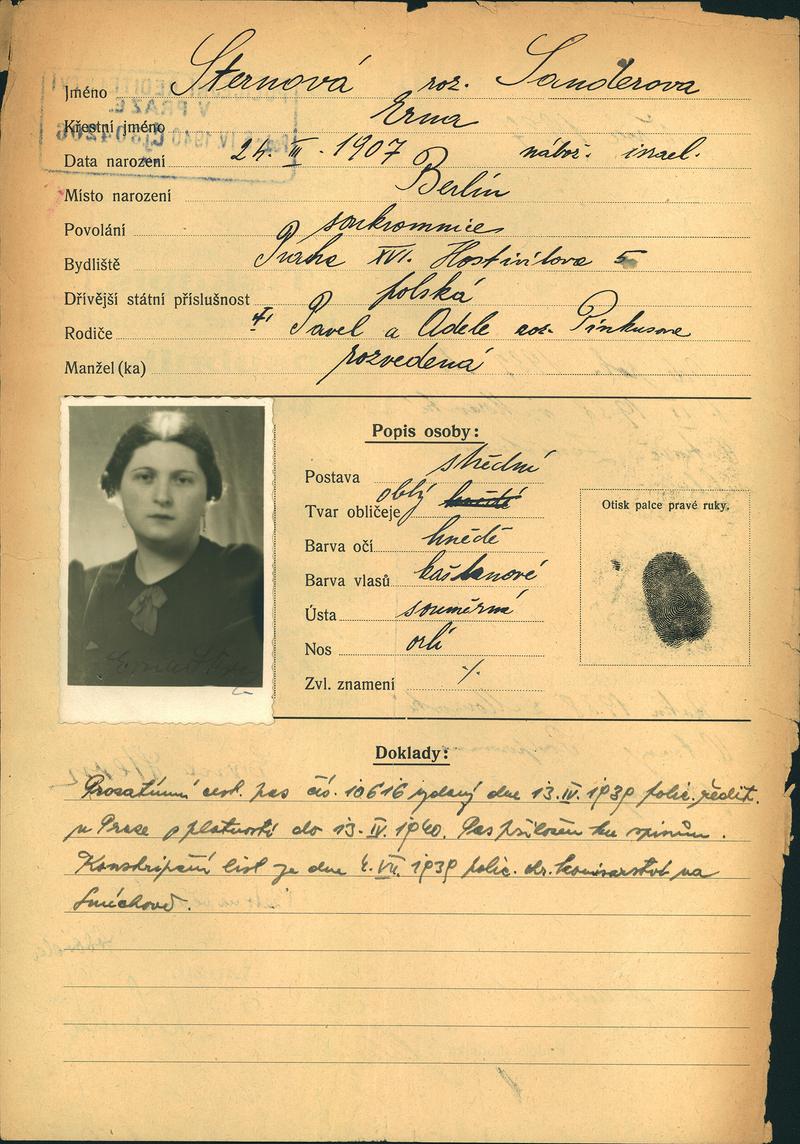 Jméno Sternová roz. Sanderova
Křestní jméno Erna
Data narození 24. III. 1907 nábož. israel.
Místo narození Berlín
Povolání soukromnice
Bydliště Praha XVI. Hostivítova 5
Dřívější státní příslušnost polská
Rodiče Pavel a Adele roz. Pinkusova
Manžel (ka) rozvedená
Popis osoby:
Postava střední
Tvar obličeje oblý
Otisk palce pravé ruky.
Barva očí hnědé
Barva vlasů kaštanové
Ústa souměrná
Nos orlí
Zvl. znamení ·/.
Doklady:
Prozatímní cest. pas čís. 10616 vydaný dne 13. IV. 1939 polic. ředit.
v Praze s platností do 13. IV. 1940. Pas přiložen ku spisům.
Konskripční list ze dne 4. VII. 1939 polic. okr. komisařství na
Smíchově.